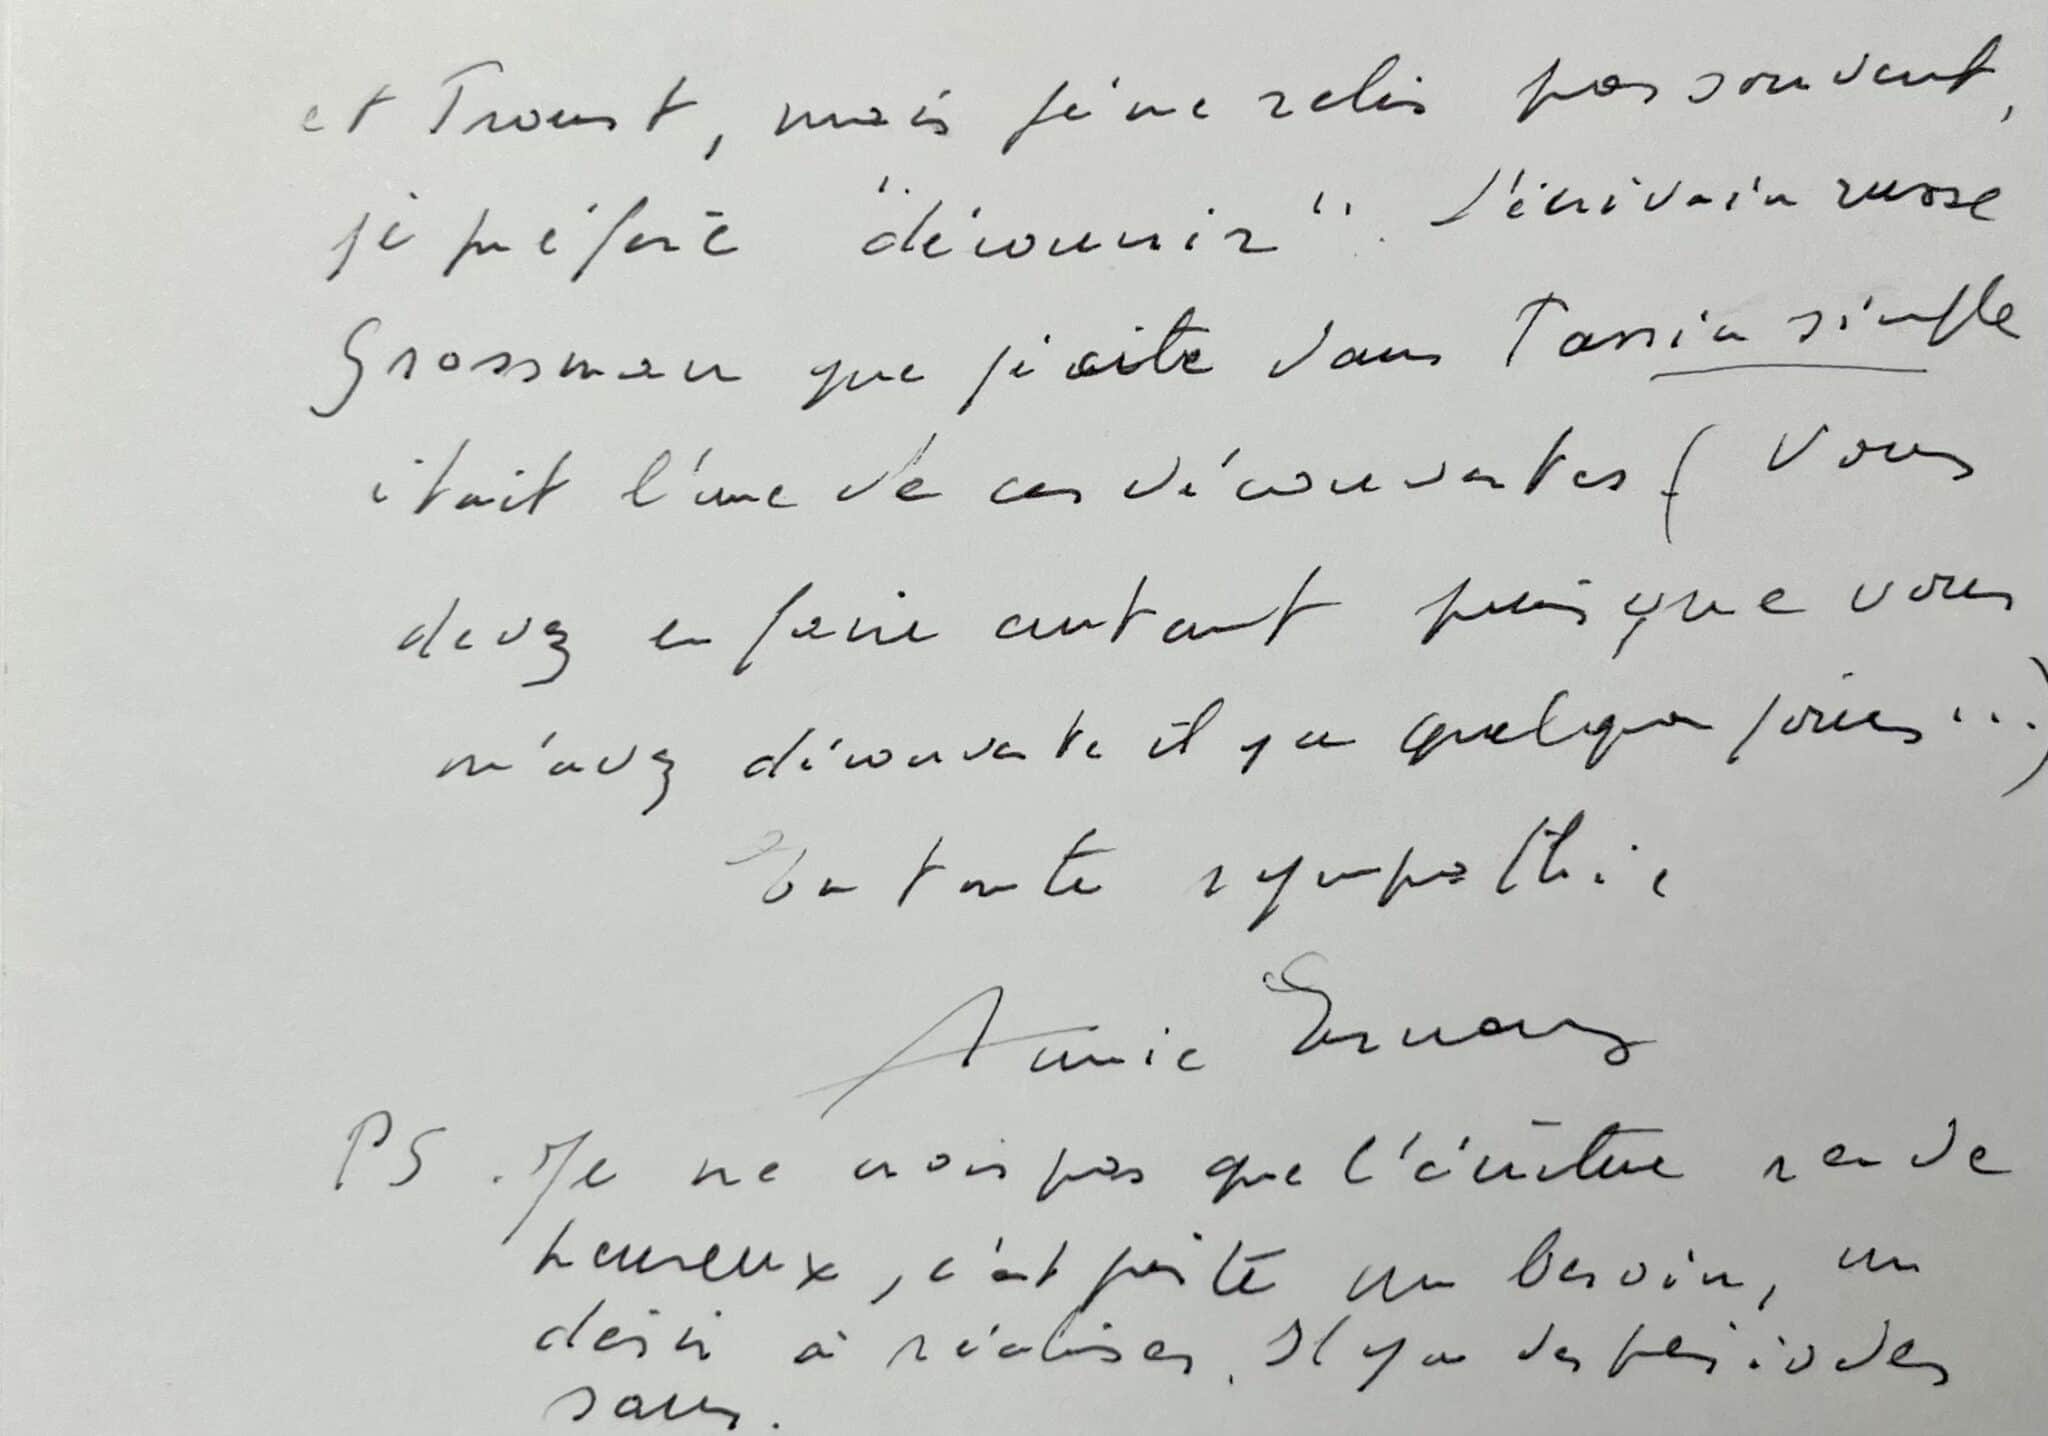 et Proust, mais je ne relis pas souvent,
je préfère "découvrir". L'écrivain russe
Grossman que je cite dans Passion simple
était l'une de ces découvertes (Vous
devez en faire autant puisque vous
m'avez découverte il y a quelques jours...)
En toute sympathie
Annie Ernaux
PS. Je ne crois pas que l'écriture rende
heureux, c'est juste un besoin, un
désir à réaliser. Il y a des périodes
sans.